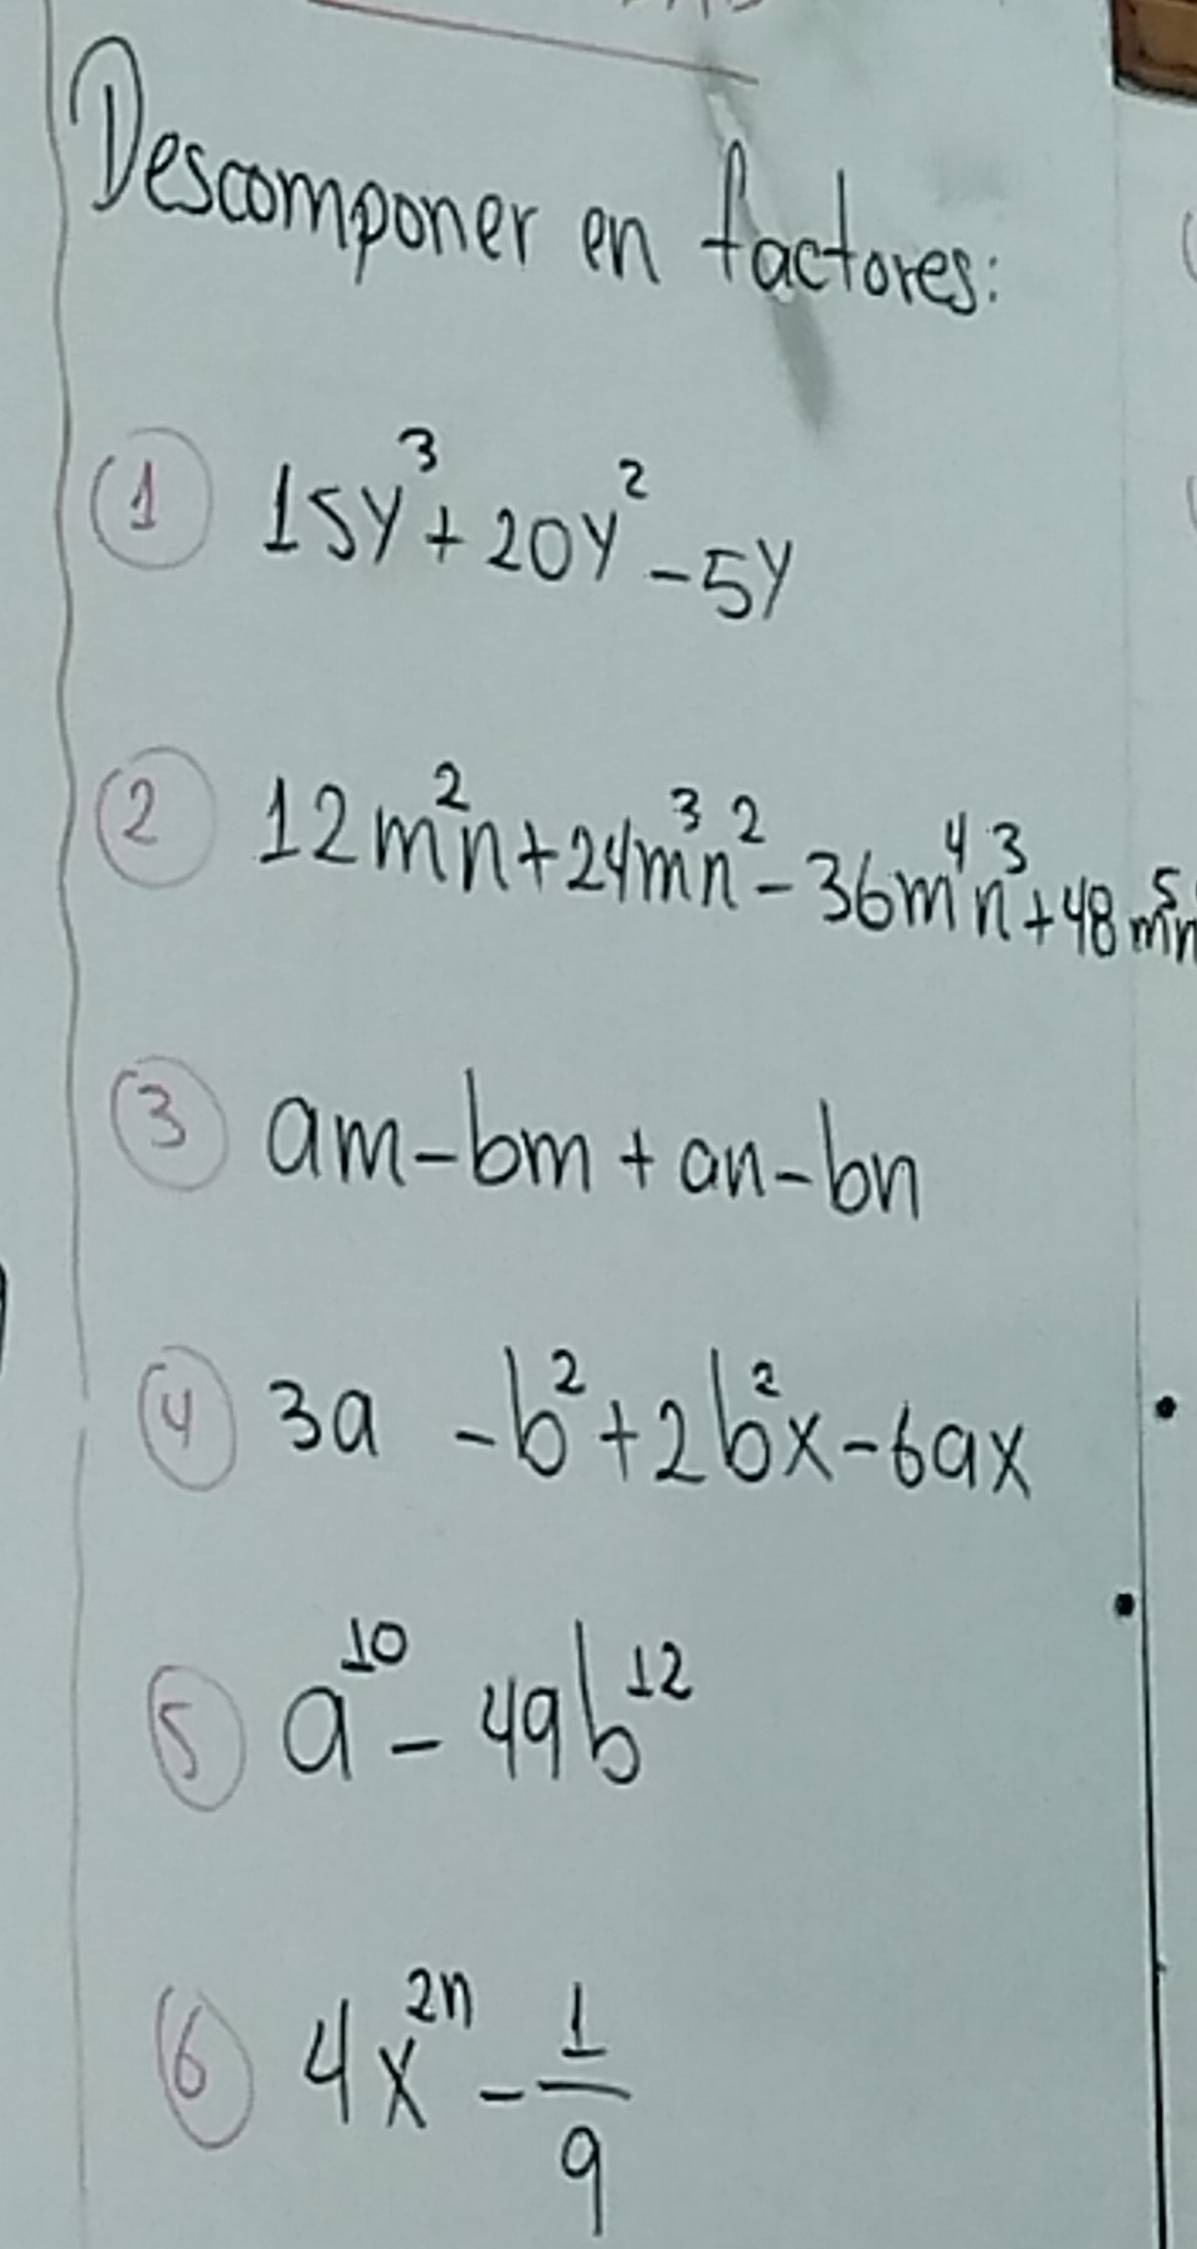 Descomponer en factores:
1 15y³+20y²-5y
2 12m²n+24m³n²-36m⁴n³+48m⁵n
3 am-bm+an-bn
4 3a -b²+2b²x-6ax
5 a¹⁰-49b¹²
6 4x²ⁿ-1/9